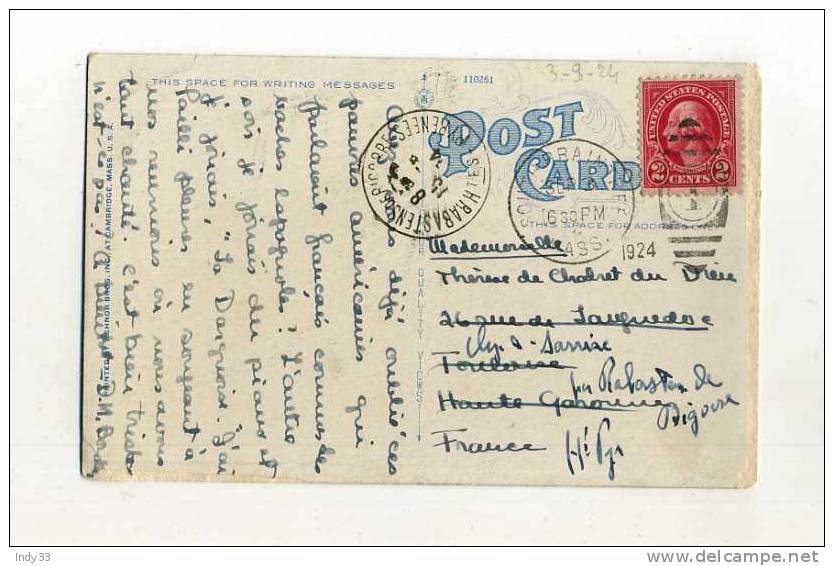 3-9-24
THIS SPACE FOR WRITING MESSAGES
110261
POST CARD
UNITED STATES POSTAGE
2 CENTS 2
Avez-vous déjà oublié ces
pauvres américaines qui
parlaient français comme des
vaches espagnoles? L'autre
soir je jouais du piano et
je jouais "La Danseuse". J'ai
failli pleurer en songeant à
nos réunions où nous avons
tant chanté. C'est bien triste
n'est-ce pas?
RABASTENS
HTES PYRENEES
630 PM
MASS.
1924
THIS SPACE FOR ADDRESS
Mademoiselle
Thérèse de Chabret du Rieu
26 rue de Languedoc
Toulouse
Haute Garonne
France
par Rabastens de
Bigorre
Htes Pyr
QUALITY VIEWS
BROS. INC., AT CAMBRIDGE, MASS. U.S.A.
Indy33
www.delcampe.net